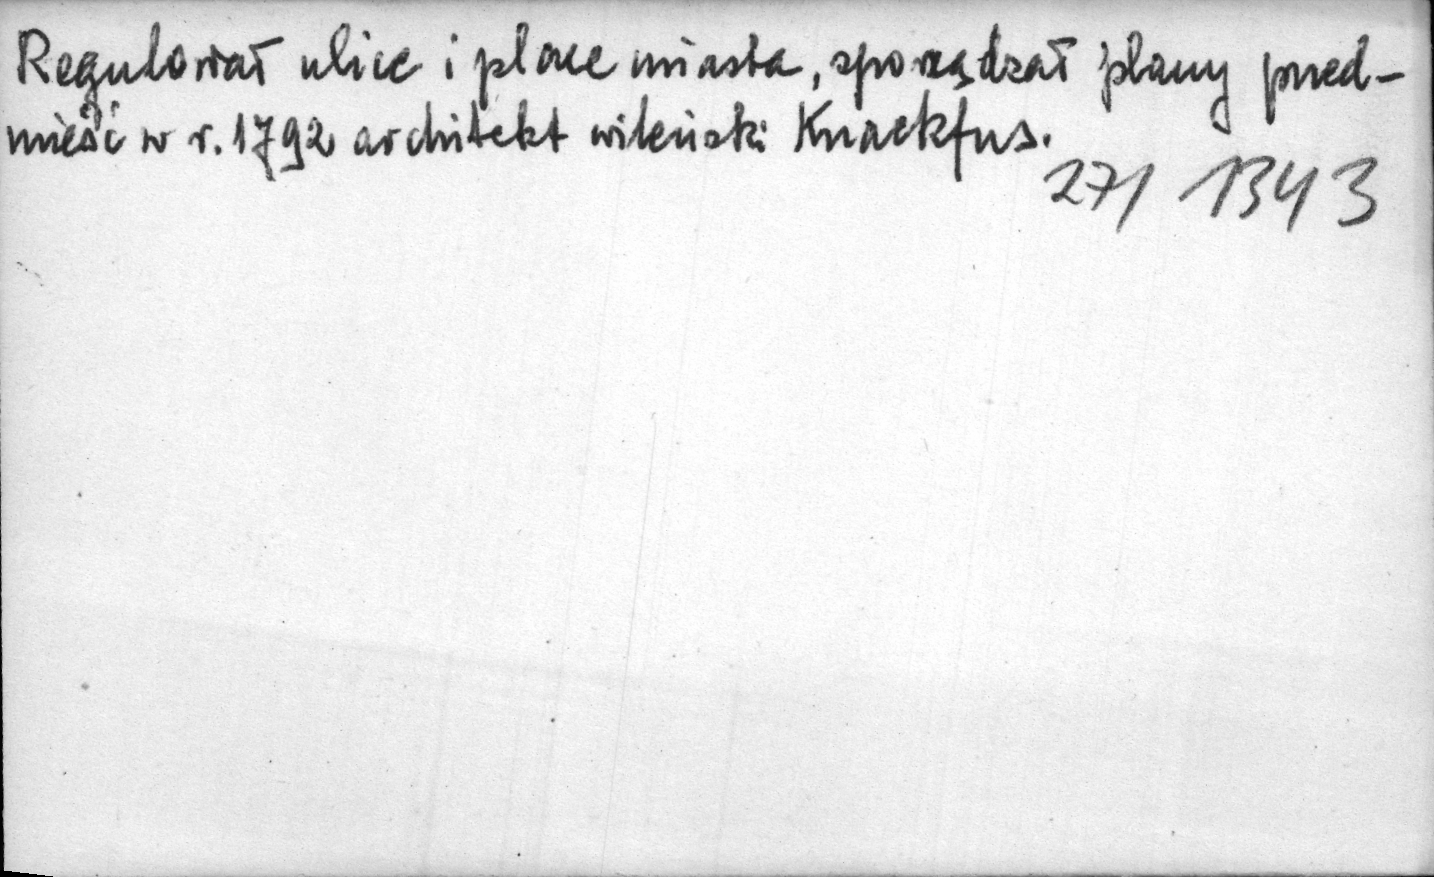 Regulował ulice i place miasta, sporządzał plany przed-
mieść w r. 1792 architekt wileński Knackfus.
271 1343